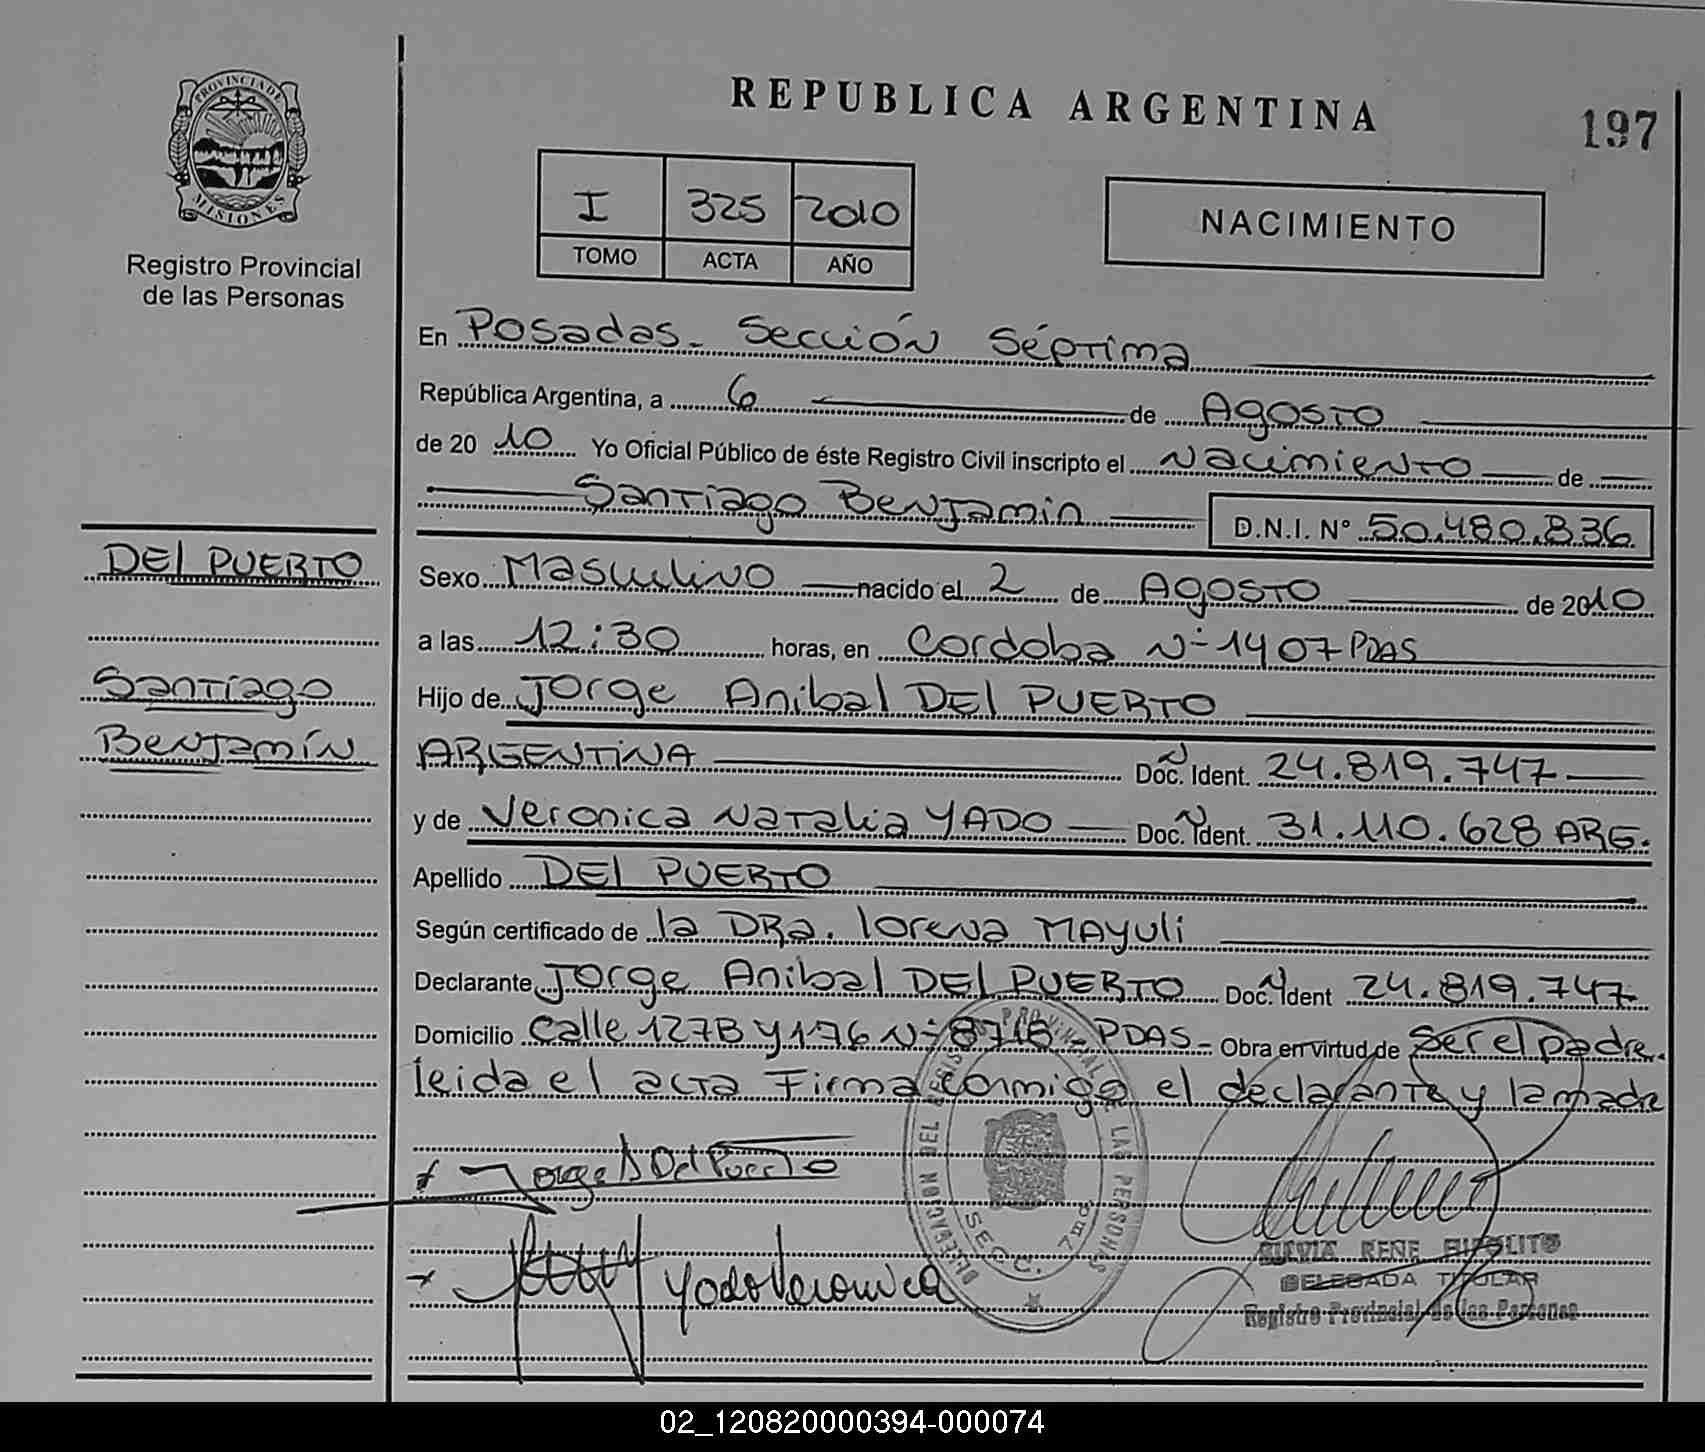 PROVINCIA DE
MISIONES
Registro Provincial
de las Personas
REPUBLICA ARGENTINA
197
I 325 2010
TOMO ACTA AÑO
NACIMIENTO
En Posadas - Sección Séptima
República Argentina, a 6 de Agosto
de 20 10 Yo Oficial Público de éste Registro Civil inscripto el Nacimiento de
Santiago Benjamin D.N.I. Nº 50.480.836
DEL PUERTO
Santiago
Benjamín
Sexo Masculino nacido el 2 de Agosto de 2010
a las 12:30 horas, en Cordoba Nº 1407 PDAS
Hijo de Jorge Anibal DEL PUERTO
ARGENTINA Doc. Ident. 24.819.747
y de Veronica Natalia YADO Doc. Ident. 31.110.628 ARG.
Apellido DEL PUERTO
Según certificado de la DRa. lorena MAyuli
Declarante Jorge Anibal DEL PUERTO Doc. Ident 24.819.747
Domicilio Calle 127B y 176 Nº 8718 - PDAS - Obra en virtud de Ser el padre.
leida el acta Firma conmigo el declarante y la madre
Jorge A Del Puerto
Yado Veronica
DELEGACION DEL REGISTRO PROVINCIAL DE LAS PERSONAS
SECC. 7ma
SILVIA RENE HIPOLITO
DELEGADA TITULAR
Registro Provincial de las Personas
02_120820000394-000074